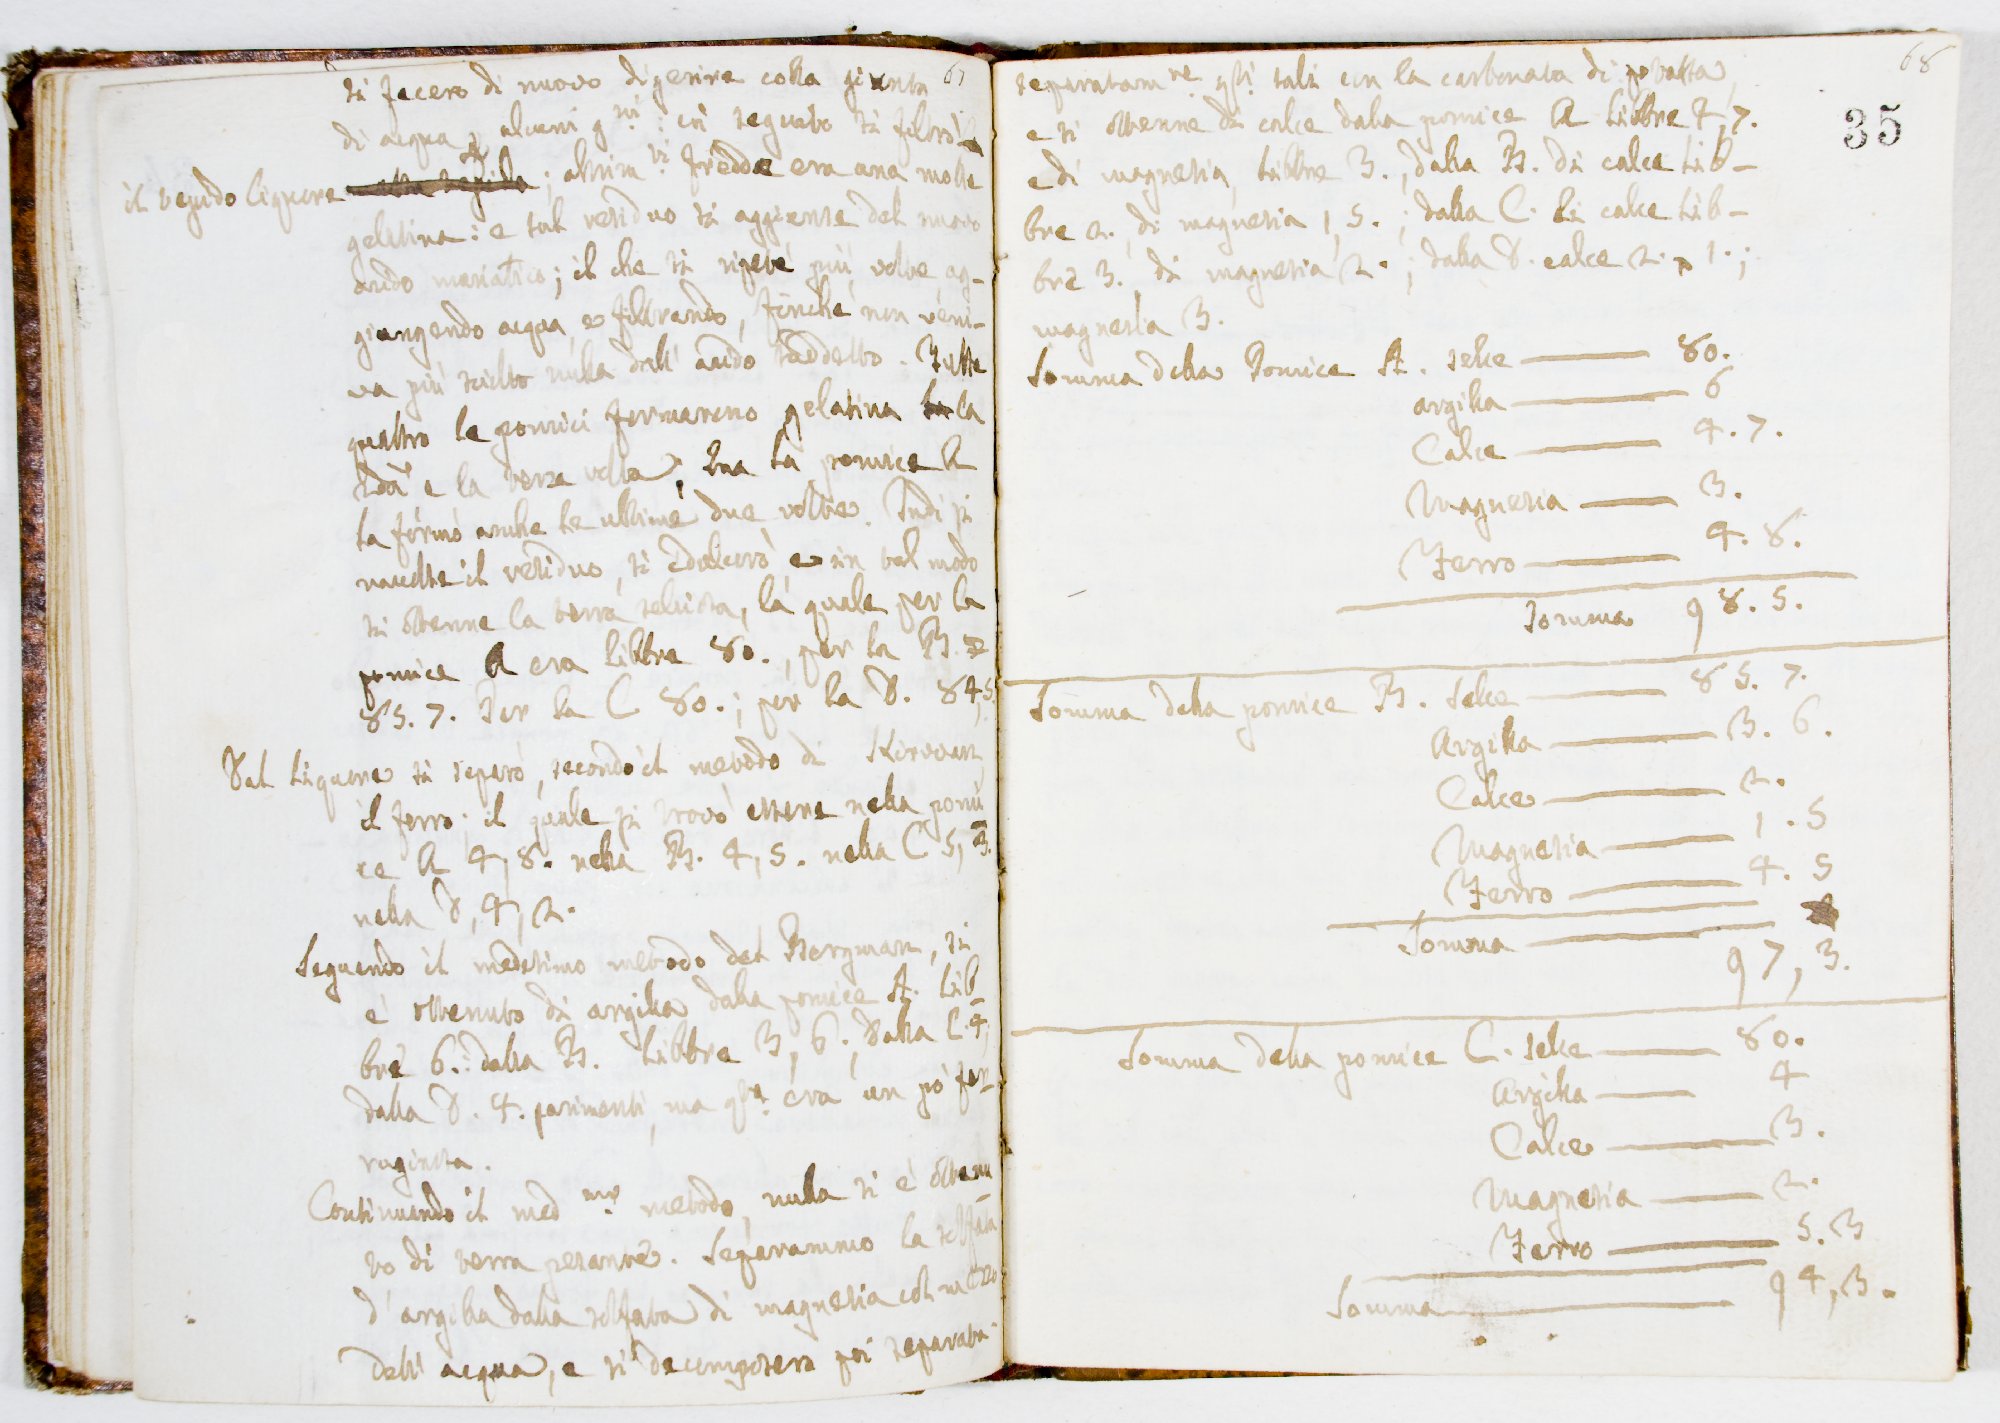 67
si fecero di nuovo digerire colla giunta
di acqua p alcuni gni: in seguito si filtrò
il tepido liquore; altrimti fredde era una molle
gelatina: e tal residuo si aggiunse del nuovo
acido muriatico; il che si ripeté più volte, ag-
giungendo acqua, e filtrando, finché non veni-
va più sciolto nulla dall' acido suddetto. Tutte
quattro le pomici formarono gelatina la
2da e la terza volta; ma la pomice A
la formò anche le ultime due volte. Indi si
raccolse il residuo, si edulcorò e in tal modo
si ottenne la terra selciosa, la quale per la
pomice A era libbre 80., per la B. e
85. 7. Per la C 80.; per la D. 84,5.
Dal liquore si separò, secondo il metodo di Kirwan,
il ferro; il quale si trovò essere nella pomi
ce A 4,8. nella B. 4,5. nella C 5,3.
nella D, 4,2.
Seguendo il medesimo metodo del Bergman, si
è ottenuto di argilla dalla pomice A. lib-
bre 6.: dalla B. libbre 3,6., dalla C. 4,
dalla D. 4. parimenti, ma qta era un pò fer-
ruginosa.
Continuando il medmo metodo, nulla si è ottenu
to di terra pesante. Separammo la solfata
d'argilla dalla solfata di magnesia col mezzo
dell' acqua, e si decomposera poi separata-
68
35
separatamne qsti sali con la carbonata di potassa,
e si ottenne di calce dalla pomice A libbre 4,7.
e di magnesia, libbre 3., dalla B. di calce lib-
bre 2., di magnesia 1,5.; dalla C. di calce lib-
bre 3. di magnesia 2.; dalla D. calce 2. 1.;
magnesia 3.
Somma della Pomice A. selce — 80.
argilla — 6
Calce — 4. 7.
Magnesia — 3.
Ferro — 4. 8.
Somma 98. 5.
Somma della pomice B. Selce — 85. 7.
Argilla — 3. 6.
Calce — 2.
Magnesia — 1. 5
Ferro — 4. 5
Somma — 97, 3.
Somma della pomice C. selce — 80.
Argilla — 4
Calce — 3.
Magnesia — 2.
Ferro — 5. 3
Somma — 94, 3.